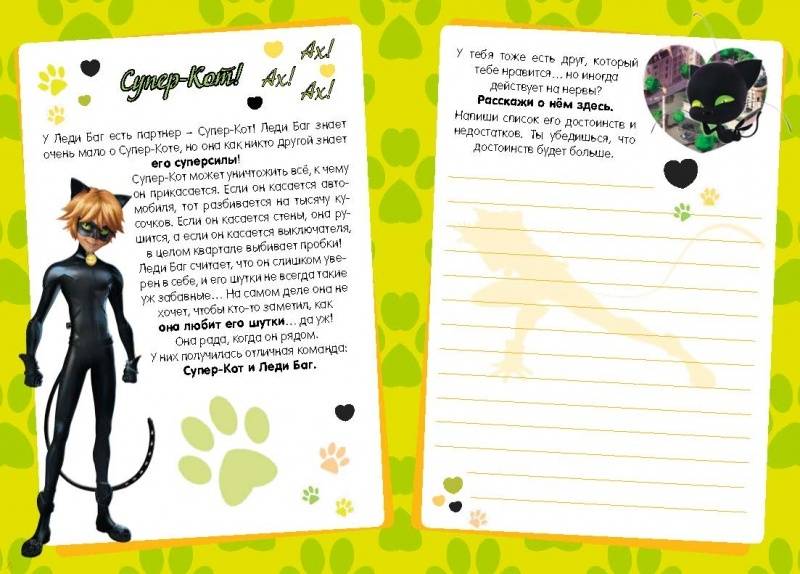 Супер-Кот!
Ах!
Ах!
Ах!
У Леди Баг есть партнер – Супер-Кот! Леди Баг знает
очень мало о Супер-Коте, но она как никто другой знает
его суперсилы!
Супер-Кот может уничтожить всё, к чему
он прикасается. Если он касается авто-
мобиля, тот разбивается на тысячу ку-
сочков. Если он касается стены, она ру-
шится, а если он касается выключателя,
в целом квартале выбивает пробки!
Леди Баг считает, что он слишком уве-
рен в себе, и его шутки не всегда такие
уж забавные... На самом деле она не
хочет, чтобы кто-то заметил, как
она любит его шутки... да уж!
Она рада, когда он рядом.
У них получилась отличная команда:
Супер-Кот и Леди Баг.
У тебя тоже есть друг, который
тебе нравится... но иногда
действует на нервы?
Расскажи о нём здесь.
Напиши список его достоинств и
недостатков. Ты убедишься, что
достоинств будет больше.